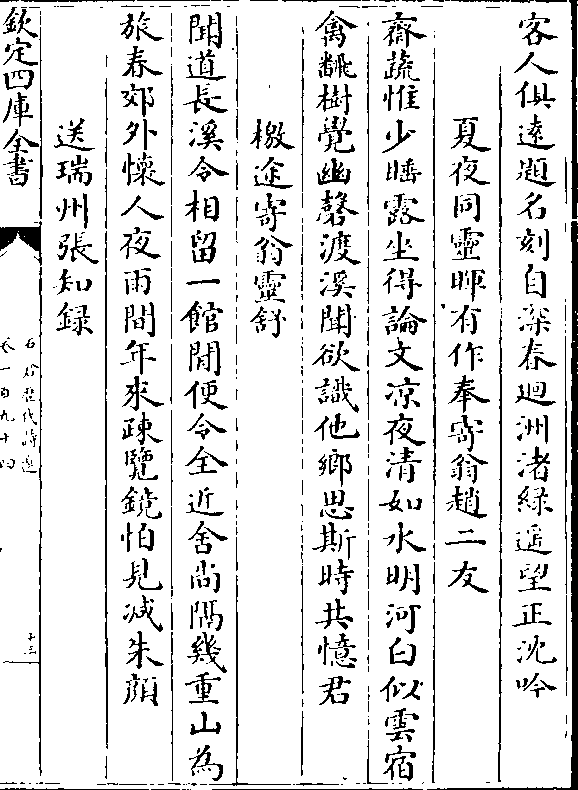 客人俱遠題名刻自深春迴洲渚緑遥望正沈吟
夏夜同靈暉有作奉寄翁趙二友
齋蔬惟少睡露坐得論文凉夜清如水明河白似雲宿
禽翻樹覺幽磬渡溪聞欲識他鄉思斯時共憶君
檄途寄翁靈舒
聞道長溪令相留一館閒便令全近舍尚隔幾重山為
旅春郊外懷人夜雨間年來疎覽鏡怕見減朱顔
送瑞州張知録
欽定四庫全書
石倉歴代詩選
卷一百九十四
十三